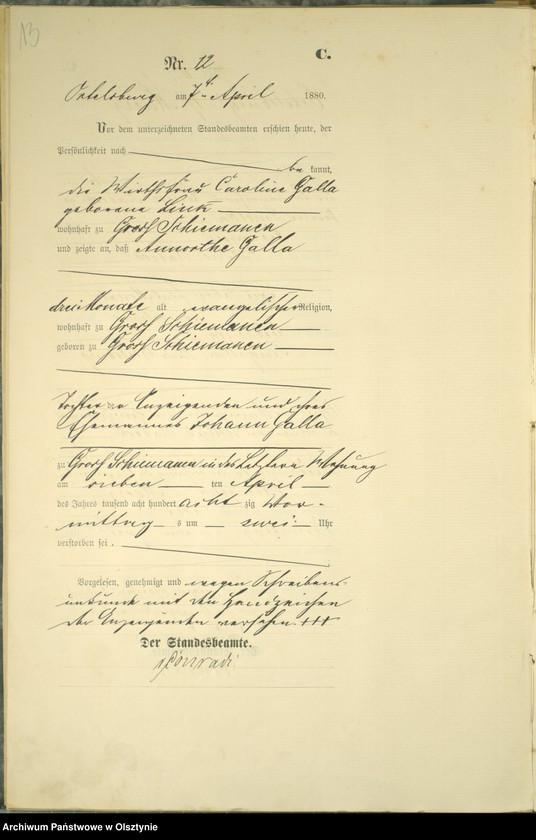 13
C.
Nr. 12
Ortelsburg am 7t April 1880.
Vor dem unterzeichneten Standesbeamten erschien heute, der
Persönlichkeit nach
be kannt,
die Wirthsfrau Caroline Galla
geborene Link
wohnhaft zu Groß Schiemanen
und zeigte an, daß Annorthe Galla
drei Monate alt evangelischer Religion,
wohnhaft zu Groß Schiemanen
geboren zu Groß Schiemanen
Tochter der Anzeigenden und ihres
Ehemannes Johann Galla
zu Groß Schiemanen in des Letztern Wohnung
am sieben ten April
des Jahres tausend acht hundert acht zig Vor-
mittag s um zwei Uhr
verstorben sei.
Vorgelesen, genehmigt und wegen Schreibens-
unkunde mit den Handzeichen
der Anzeigenden versehen. +++
Der Standesbeamte.
Conradi
Archiwum Państwowe w Olsztynie